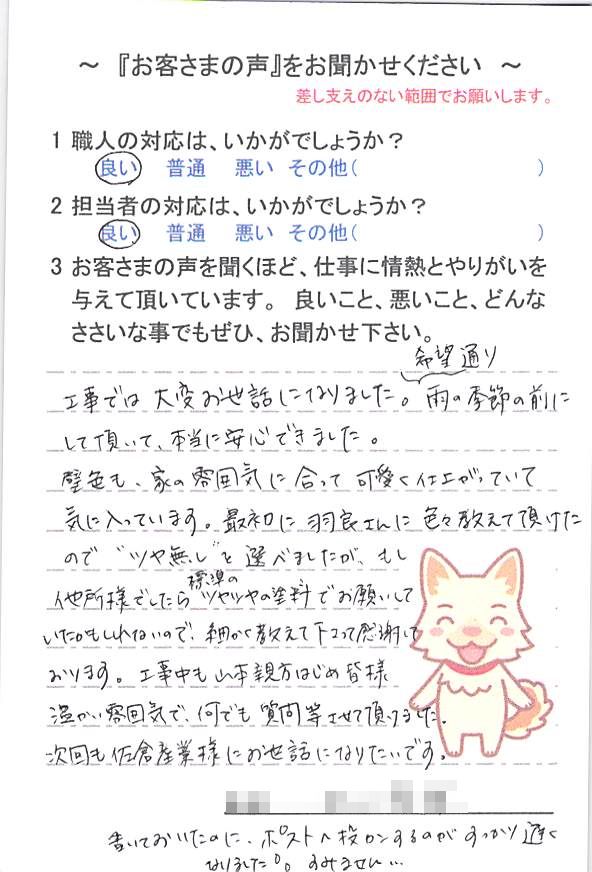 ～ 『お客さまの声』をお聞かせください ～
差し支えのない範囲でお願いします。
1 職人の対応は、いかがでしょうか？
良い 普通 悪い その他( )
2 担当者の対応は、いかがでしょうか？
良い 普通 悪い その他( )
3 お客さまの声を聞くほど、仕事に情熱とやりがいを
与えて頂いています。 良いこと、悪いこと、どんな
ささいな事でもぜひ、お聞かせ下さい。
希望通り
工事では 大変お世話になりました。雨の季節の前に
して頂いて、本当に安心できました。
壁色も、家の雰囲気に合って可愛く仕上がっていて
気に入っています。最初に羽良さんに色々教えて頂けた
ので "ツヤ無し"を選べましたが、もし
標準の
他所様でしたらツヤツヤの塗料でお願いして
いたかもしれないので、細かく教えて下さって感謝して
おります。工事中も山本親方はじめ皆様
温かい雰囲気で、何でも質問等させて頂けました。
次回も佐倉産業様にお世話になりたいです。
書いておいたのに、ポストへ投カンするのがすっかり遅く
なりました。すみません…